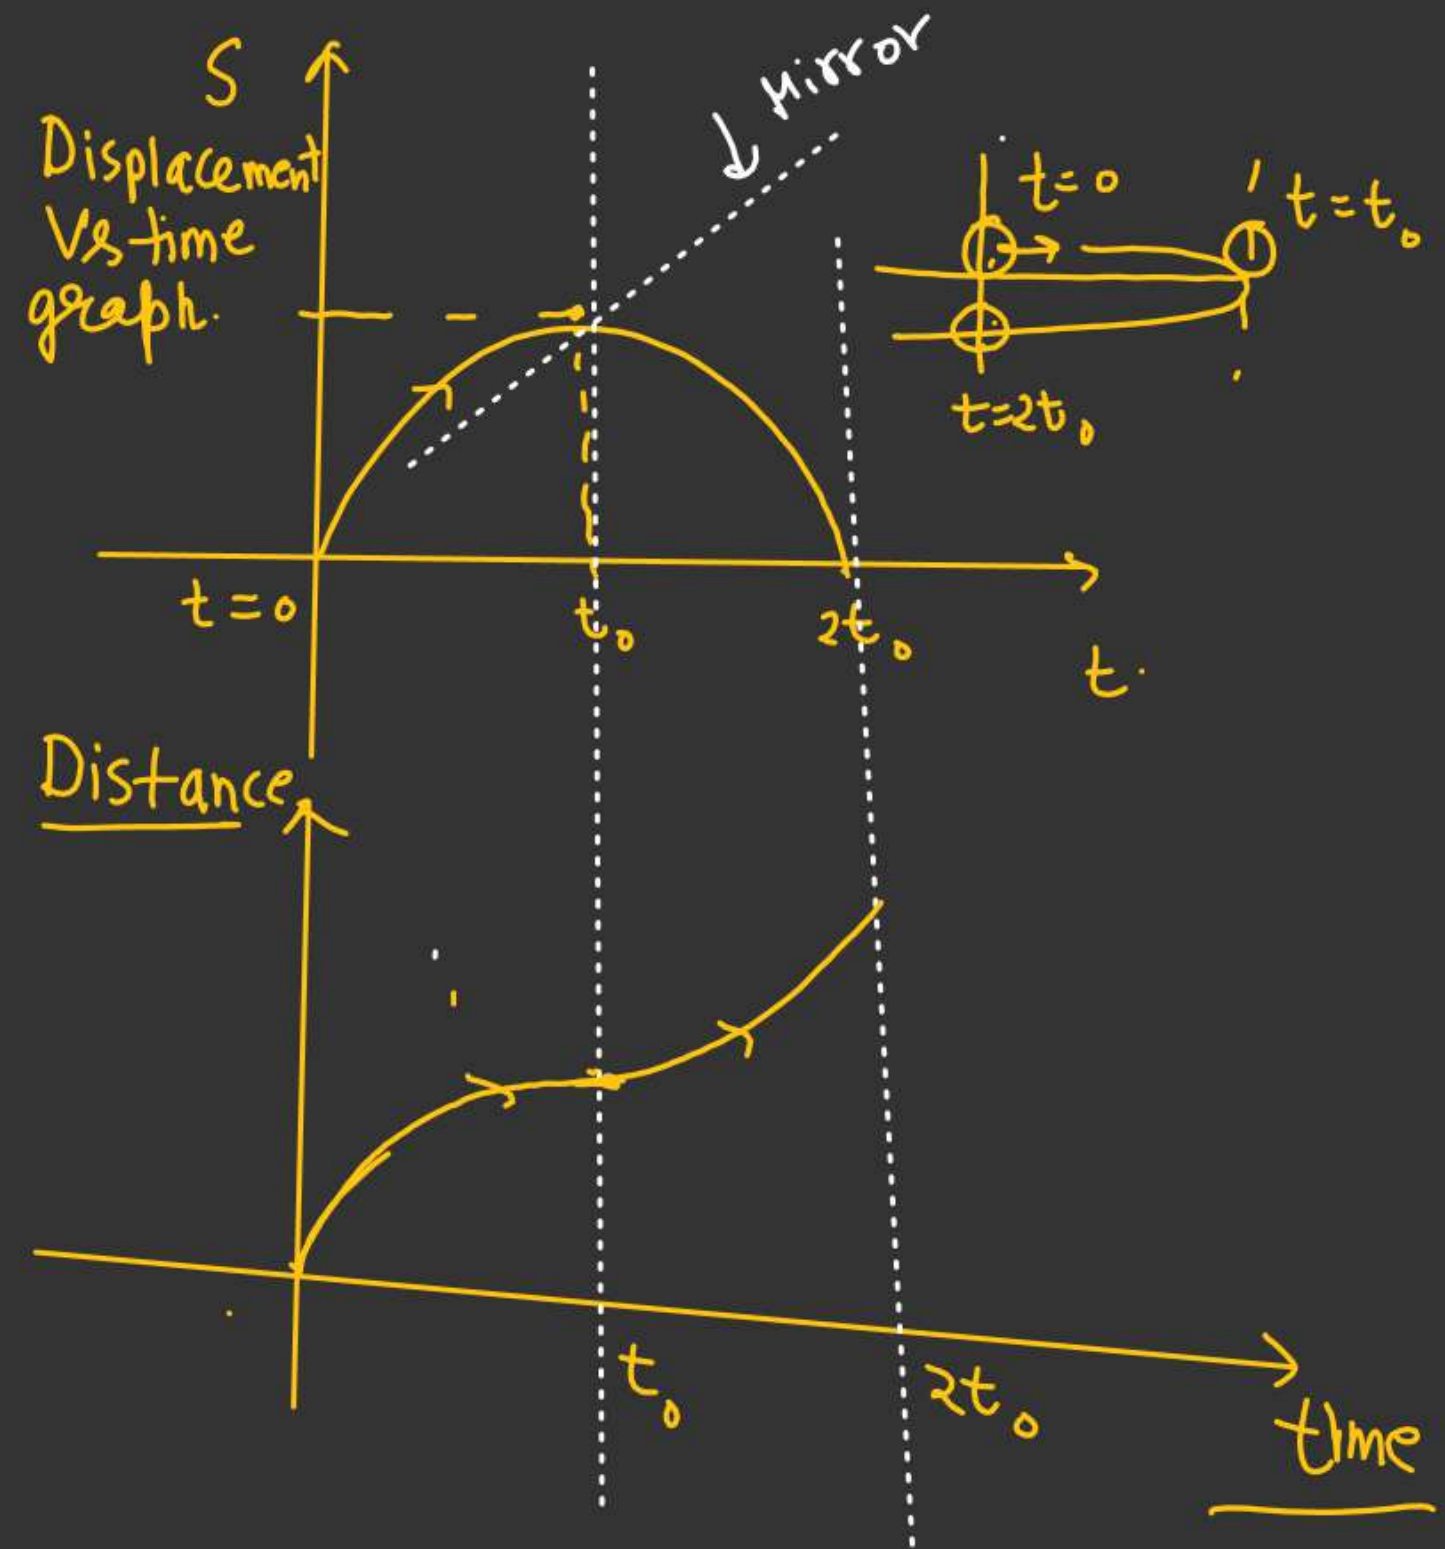 S
Displacement
Vs time
graph.
Mirror
t=0
t=t₀
t=2t₀
t=0
t₀
2t₀
t.
Distance
t₀
2t₀
time